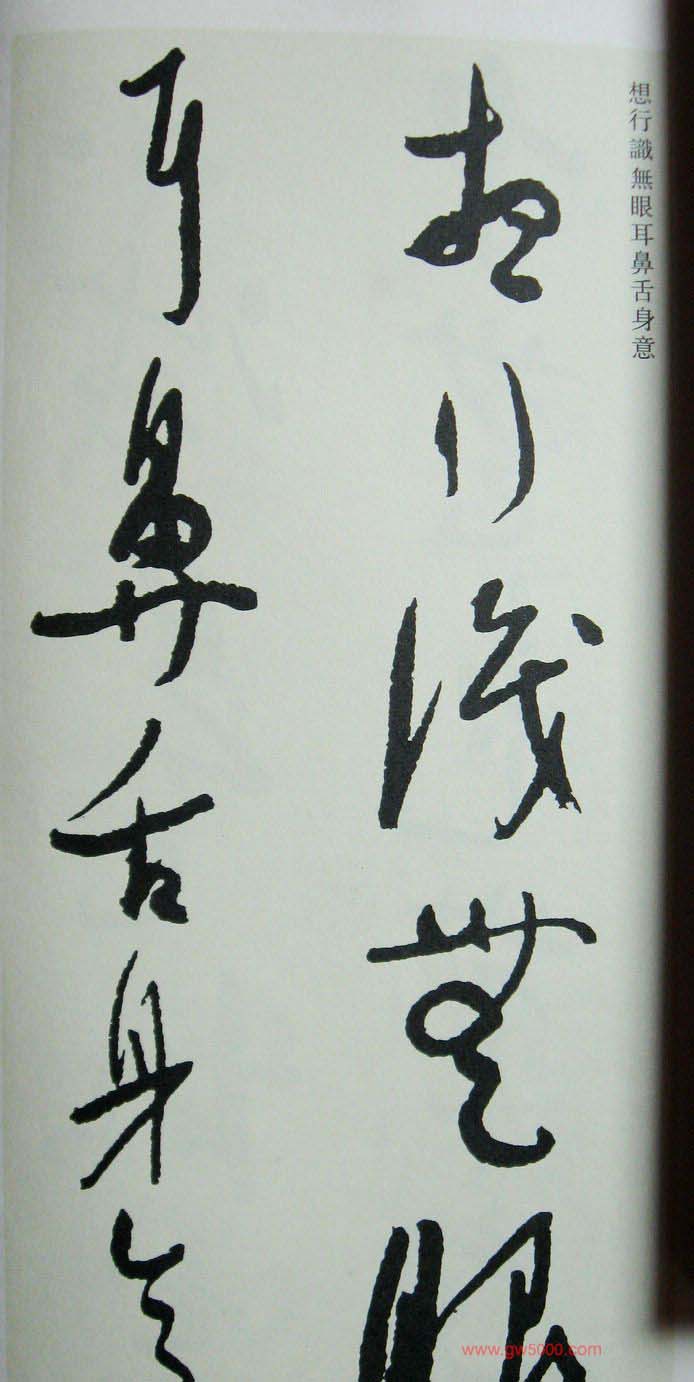 想行識無眼耳鼻舌身意
想行識無眼
耳鼻舌身意
www.gw5000.com